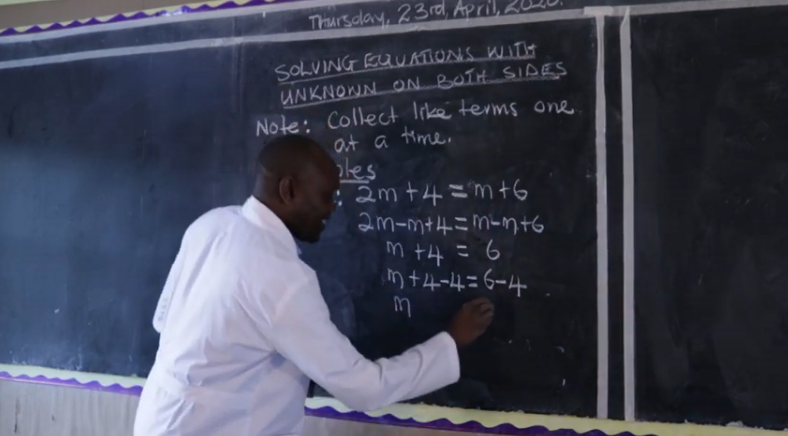 Thursday, 23rd, April, 2020.
SOLVING EQUATIONS WITH
UNKNOWN ON BOTH SIDES
Note: Collect like terms one
at a time.
: 2m + 4 = m + 6
2m - m + 4 = m - m + 6
m + 4 = 6
m + 4 - 4 = 6 - 4
m